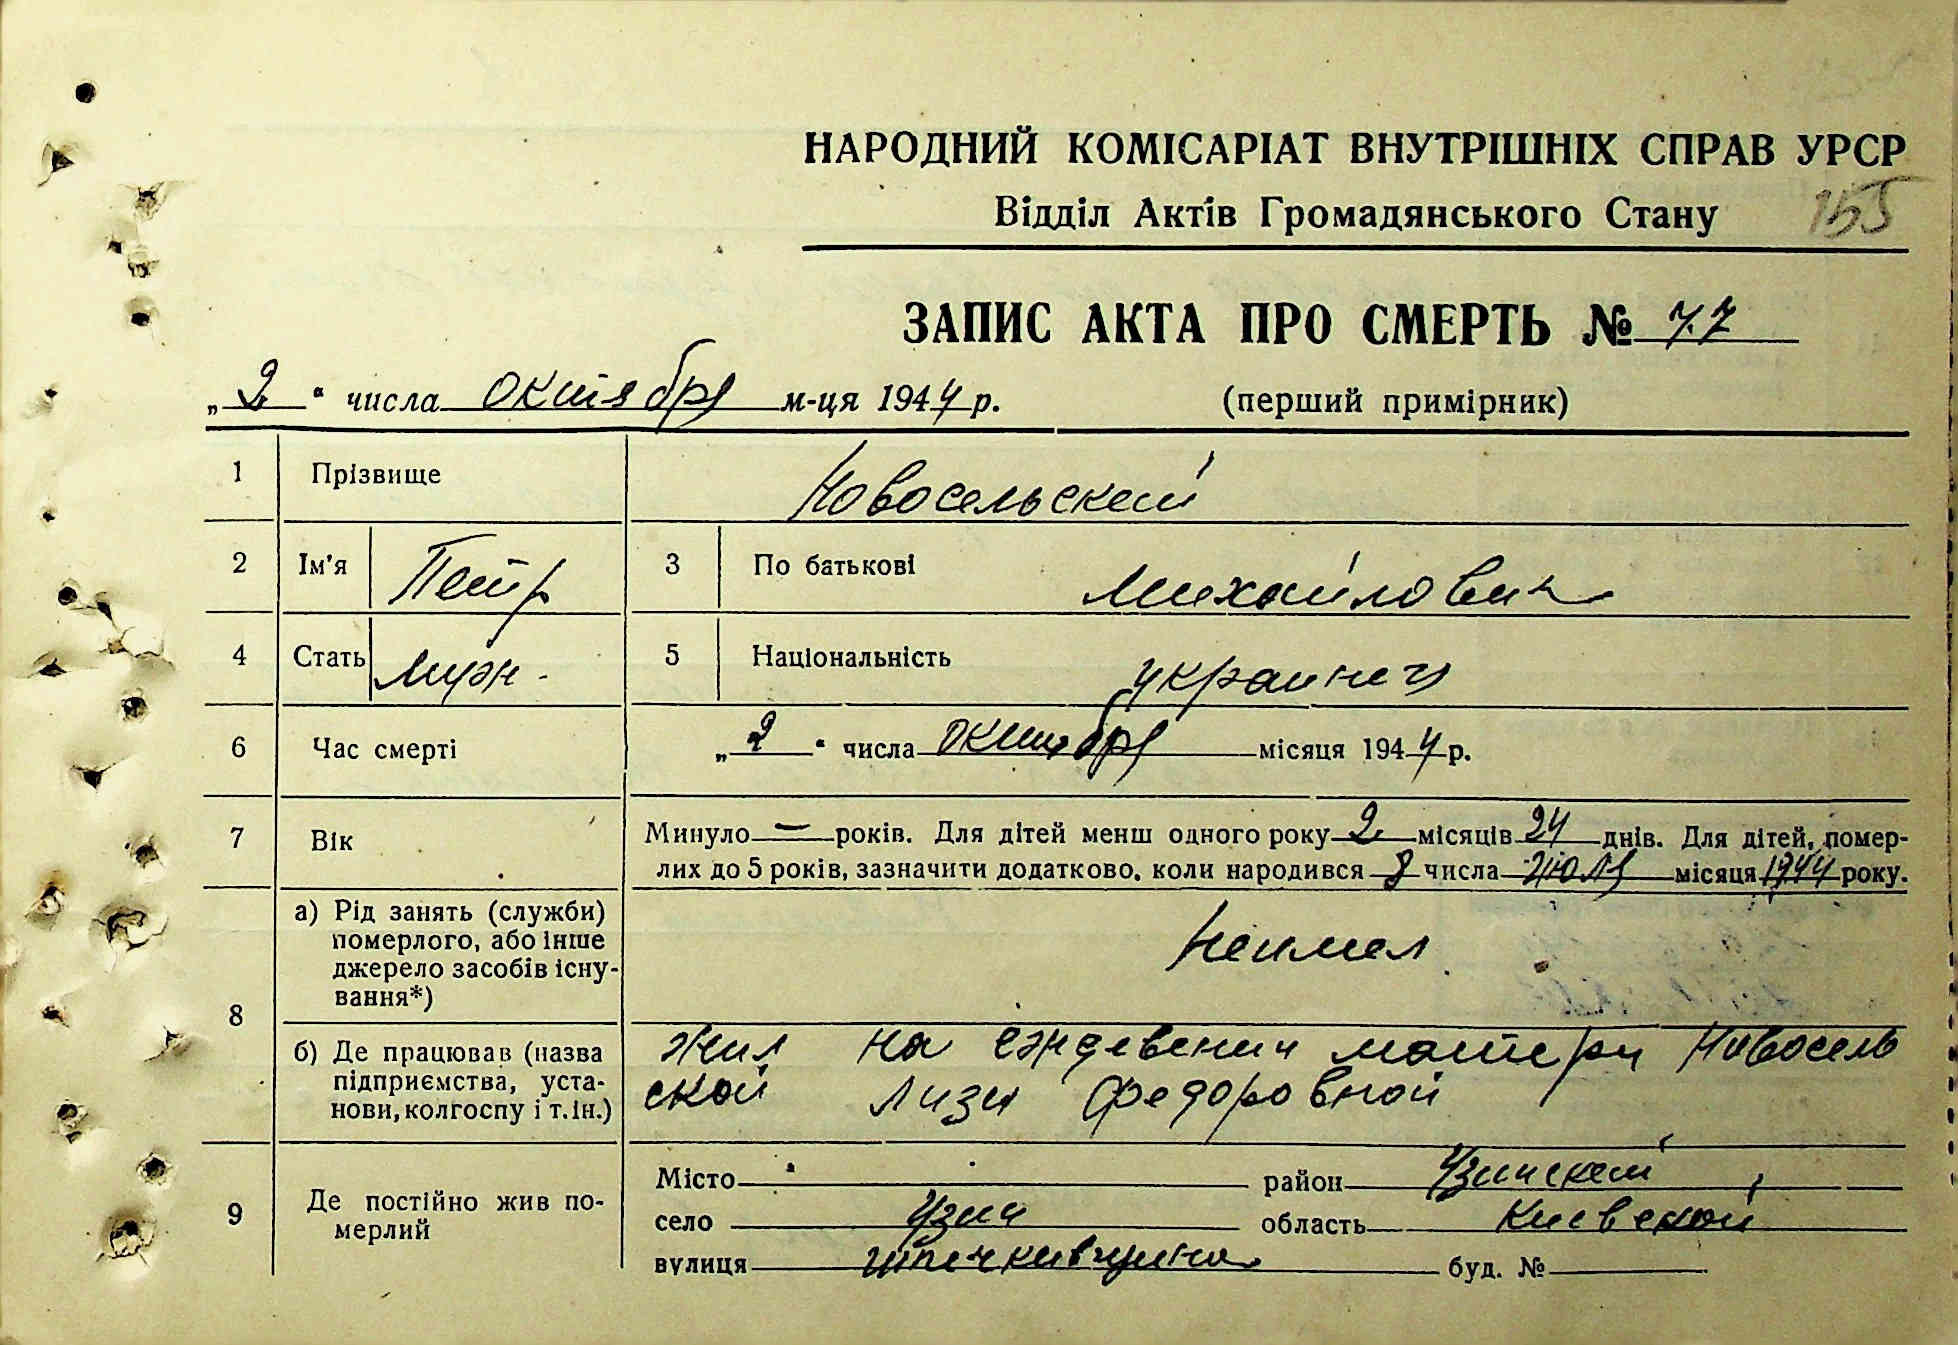 НАРОДНИЙ КОМІСАРІАТ ВНУТРІШНІХ СПРАВ УРСР
Відділ Актів Громадянського Стану
155
ЗАПИС АКТА ПРО СМЕРТЬ № 77
„2“ числа октября м-ця 1944 р. (перший примірник)
1 Прізвище Новосельский
2 Ім'я Петр 3 По батькові Михайлович
4 Стать муж. 5 Національність украинец
6 Час смерті „2“ числа октября місяця 1944 р.
7 Вік Минуло — років. Для дітей менш одного року 2 місяців 24 днів. Для дітей, помер-
лих до 5 років, зазначити додатково, коли народився 8 числа июля місяця 1944 року.
8 а) Рід занять (служби)
померлого, або інше
джерело засобів існу-
вання*) Неимел
б) Де працював (назва
підприємства, уста-
нови, колгоспу і т. ін.) жил на еждевении матери Новосель
ской Лизи Федоровной
9 Де постійно жив по-
мерлий
Місто район Узинский
село Узин область Киевской
вулиця буд. №